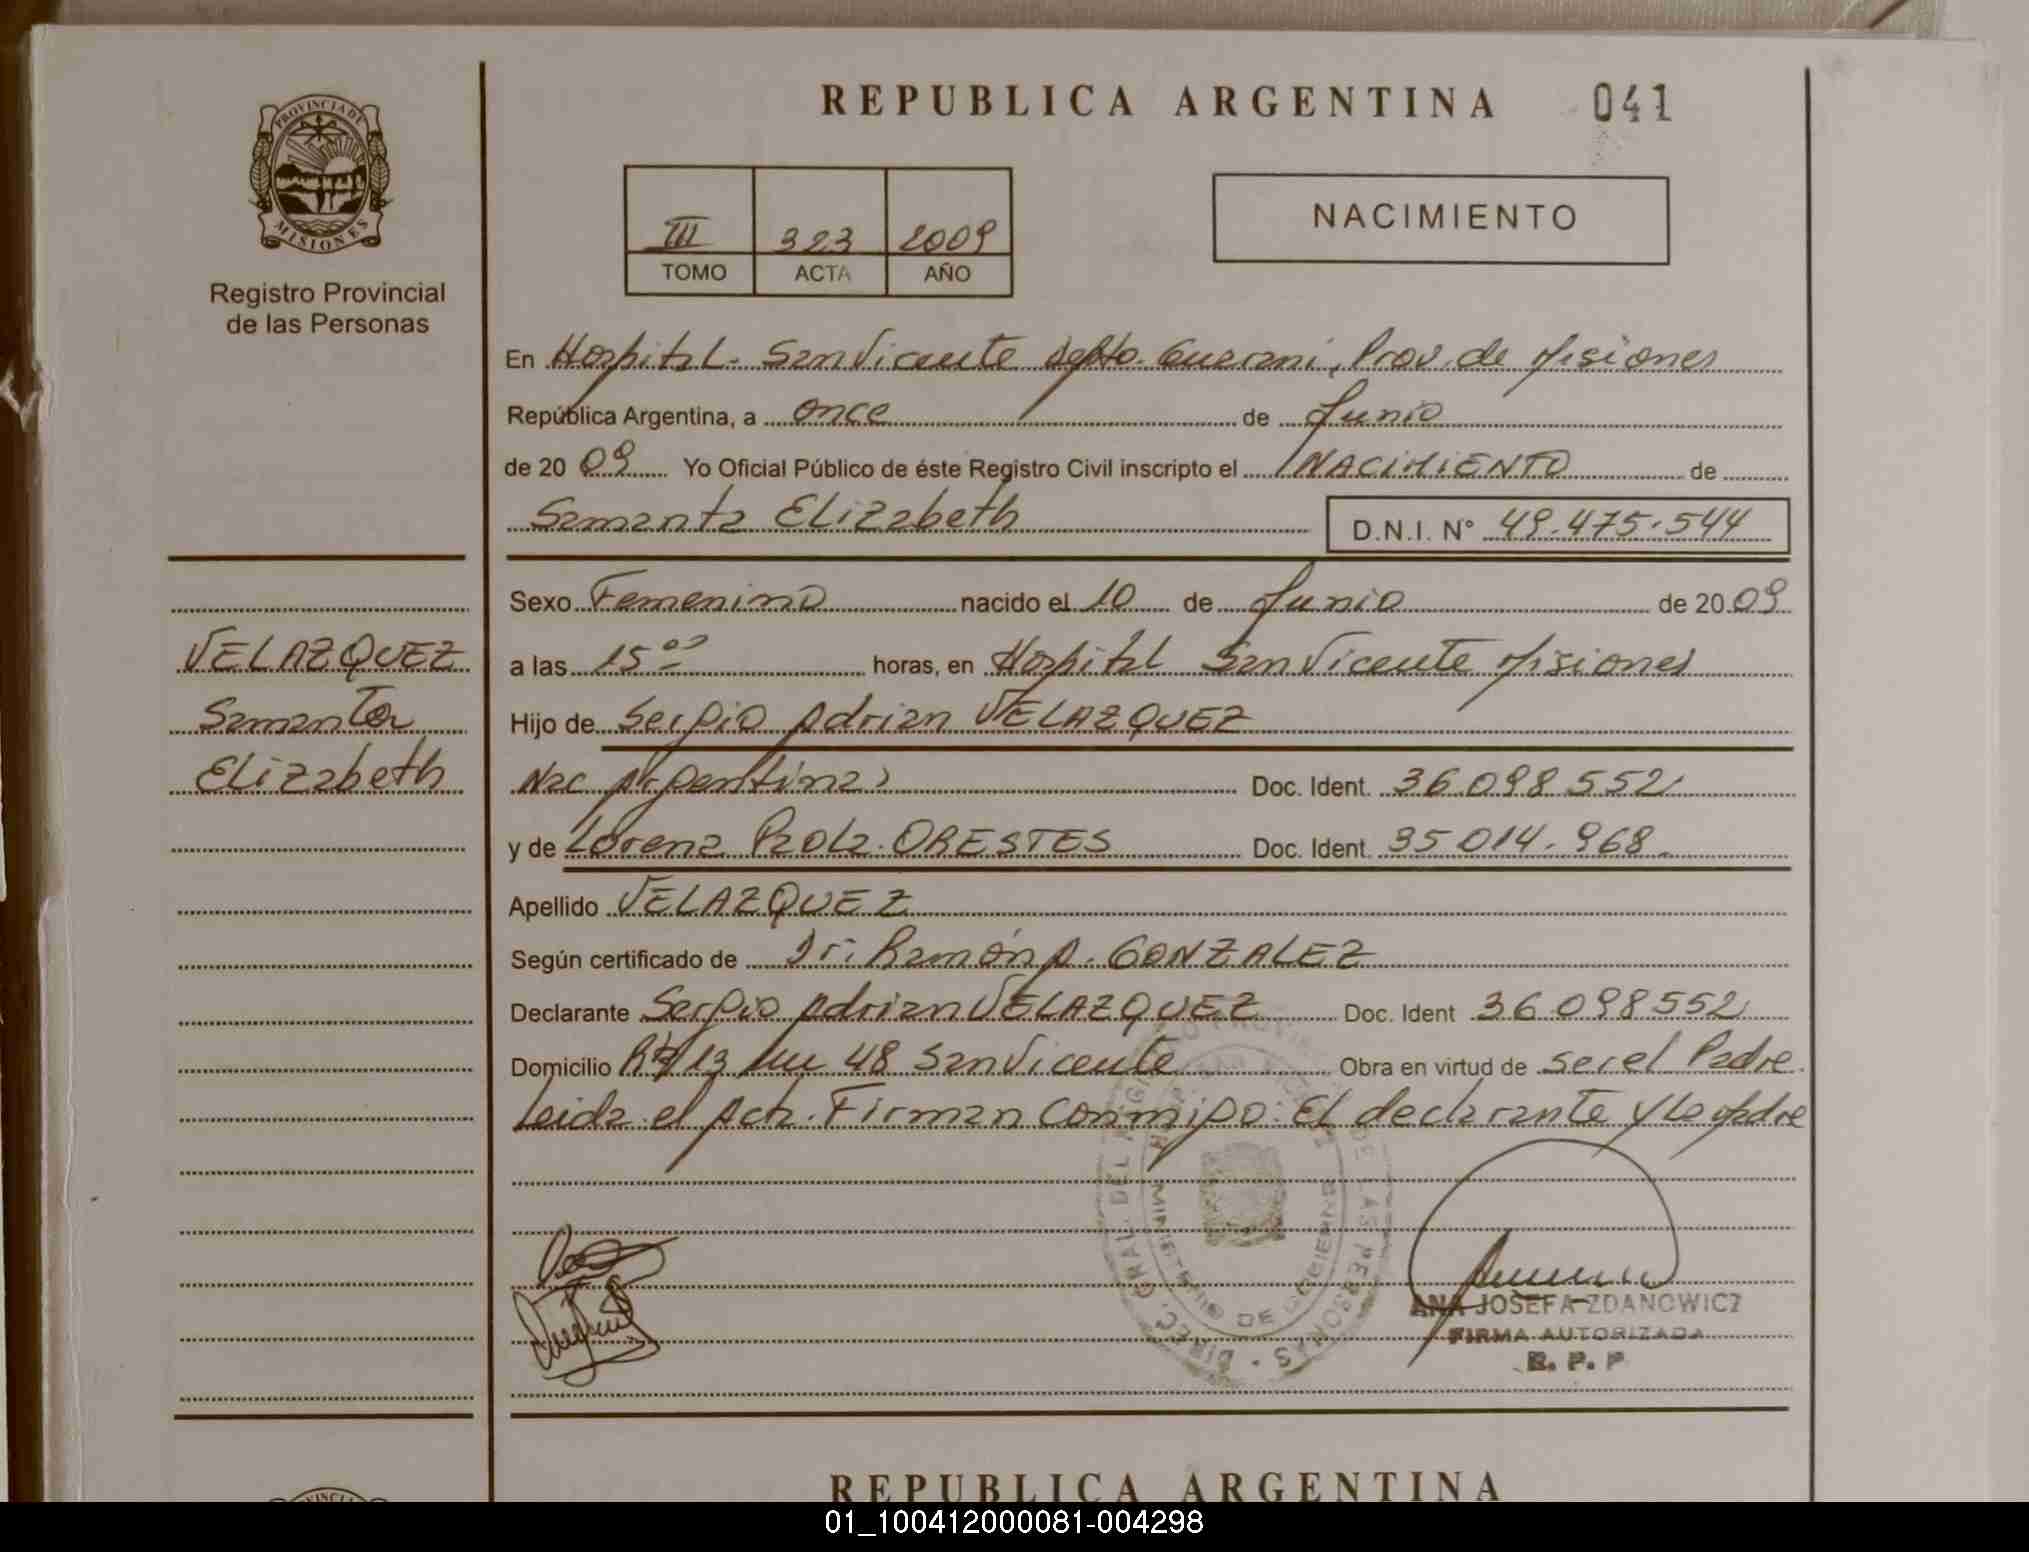 REPUBLICA ARGENTINA 041
PROVINCIA DE
MISIONES
Registro Provincial
de las Personas
III 323 2009
TOMO ACTA AÑO
NACIMIENTO
En Hospital - San Vicente Depto. Guarani, Prov. de Misiones
República Argentina, a once de Junio
de 20 09 Yo Oficial Público de éste Registro Civil inscripto el NACIMIENTO de
Samanta Elizabeth D.N.I. N° 49.475.544
VELAZQUEZ
Samanta
Elizabeth
Sexo Femenino nacido el 10 de Junio de 20 09
a las 15 horas, en Hospital San Vicente Misiones
Hijo de Sergio Adrian VELAZQUEZ
Nac Argentina Doc. Ident. 36.098.552
y de Lorena Paola ORESTES Doc. Ident. 35.014.968
Apellido VELAZQUEZ
Según certificado de Dr. Ramón A. GONZALEZ
Declarante Sergio Adrian VELAZQUEZ Doc. Ident 36.098552
Domicilio 13 48 San Vicente Obra en virtud de ser el Padre
Leida el Acta. Firman Conmigo: El declarante y la Madre
DIREC. GRAL. DEL REGISTRO PROV. DE LAS PERSONAS
MINISTERIO DE GOBIERNO
ANA JOSEFA ZDANOWICZ
FIRMA AUTORIZADA
R. P. P
REPUBLICA ARGENTINA
01_100412000081-004298